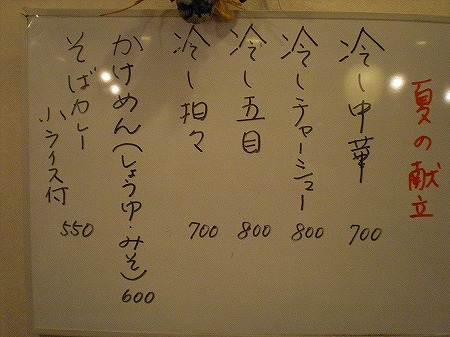 夏の献立
冷し中華 700
冷しチャーシュー 800
冷し五目 800
冷し担々 700
かけめん(しょうゆ・みそ) 600
そばカレー
小ライス付 550